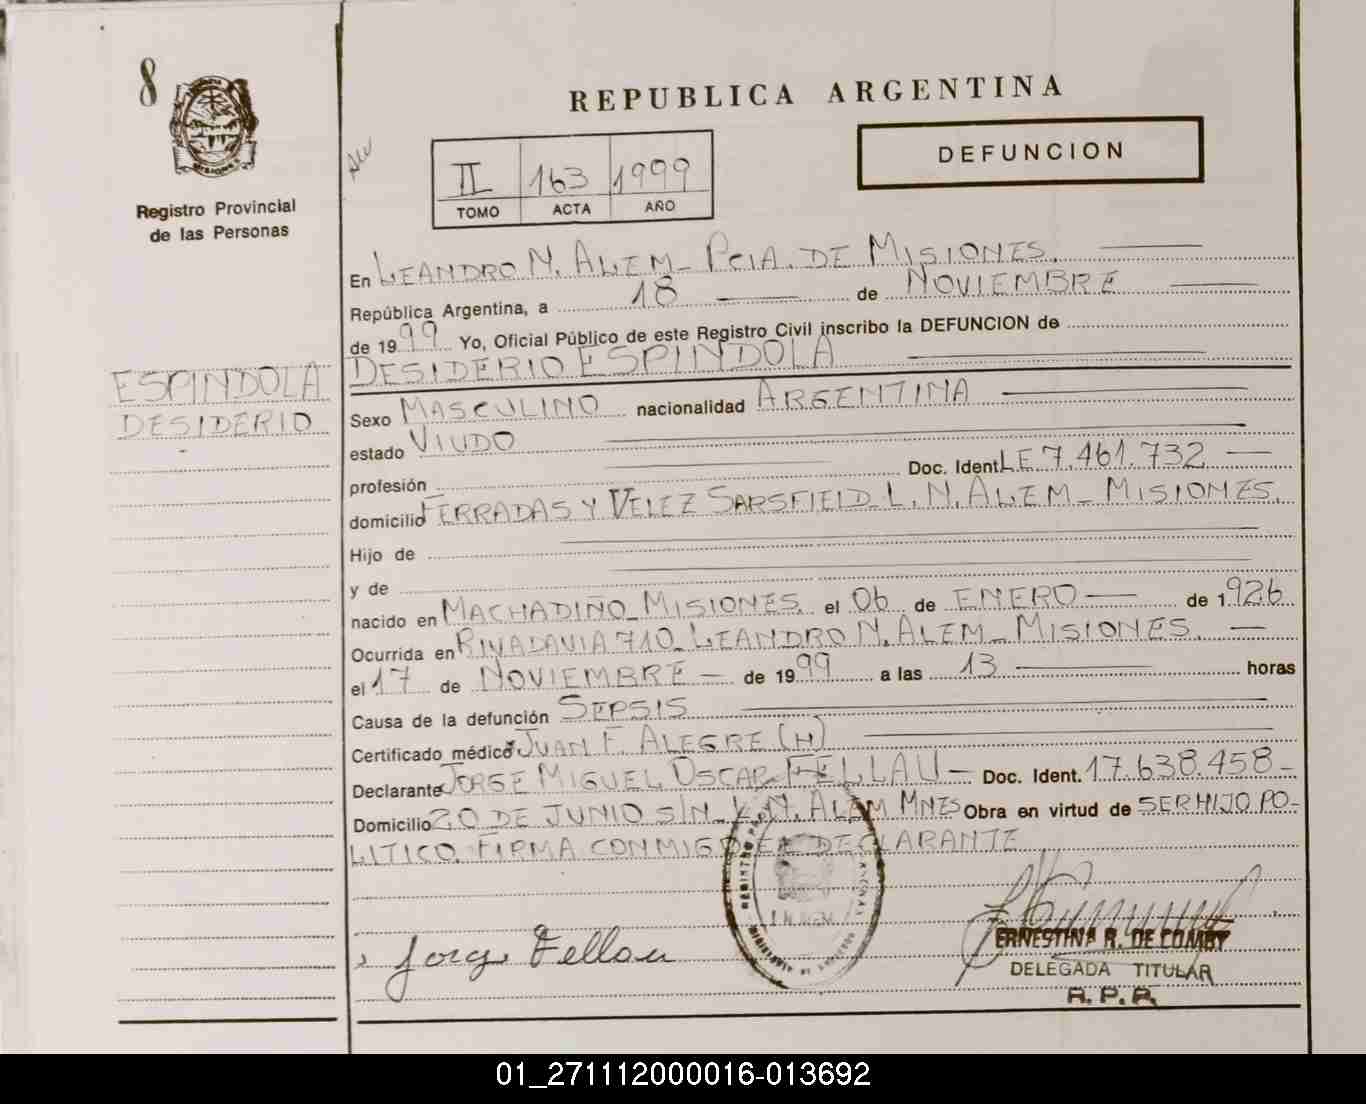 8
REPUBLICA ARGENTINA
DEFUNCION
II 163 1999
TOMO ACTA AÑO
MISIONES
Registro Provincial
de las Personas
En LEANDRO N. ALEM - PCIA. DE MISIONES.
República Argentina, a 18 de NOVIEMBRE
de 1999 Yo, Oficial Público de este Registro Civil inscribo la DEFUNCION de
DESIDERIO ESPINDOLA
ESPINDOLA
DESIDERIO
Sexo MASCULINO nacionalidad ARGENTINA
estado VIUDO
profesión Doc. Ident. LE 7.461.732
domicilio TERRADAS Y VELEZ SARSFIELD - L. N. ALEM - MISIONES.
Hijo de
y de
nacido en MACHADIÑO - MISIONES. el 06 de ENERO de 1926
Ocurrida en RIVADAVIA 710 - LEANDRO N. ALEM - MISIONES.
el 17 de NOVIEMBRE de 1999 a las 13 horas
Causa de la defunción SEPSIS
Certificado médico JUAN F. ALEGRE (H)
Declarante JORGE MIGUEL OSCAR FELLAU - Doc. Ident. 17.638.458 -
Domicilio 20 DE JUNIO S/N - L. N. ALEM MNES Obra en virtud de SER HIJO PO-
LITICO. FIRMA CONMIGO EL DECLARANTE
Jorge Fellau
ERNESTINA R. DE COMBY
DELEGADA TITULAR
R. P. P.
01_271112000016-013692